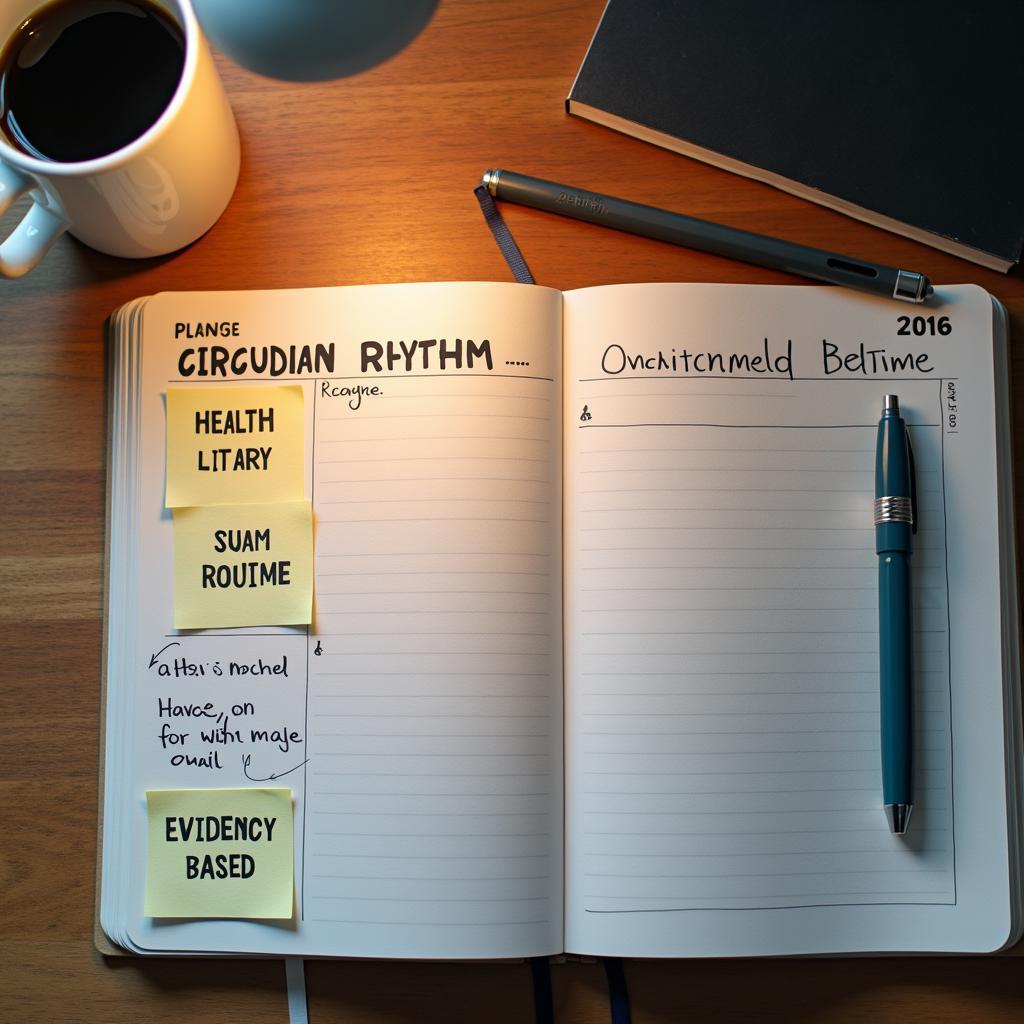 PLANGE
CIRCUDIAN RHYTHM .....
Rcayne.
HEALTH
LITARY
SUAM
ROUIME
Havce, on
for with maje
ouail
EVIDENCY
BASED
2016
Onchitcnmeld BelTime